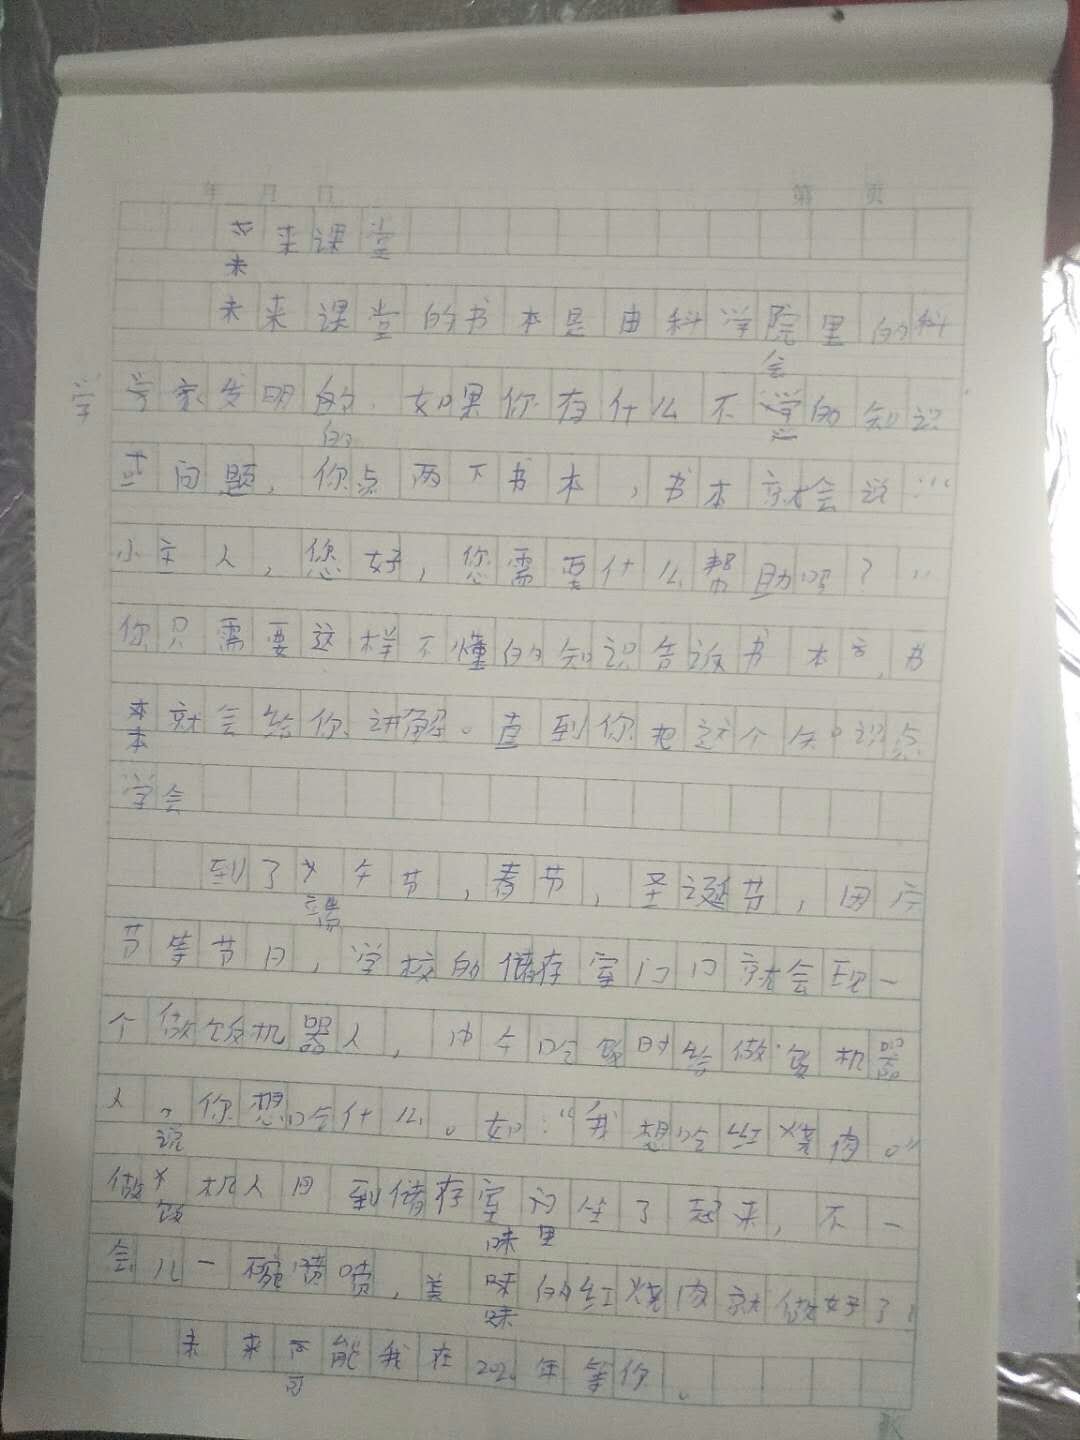 年 月 日 第 页
未来课堂
未
未来课堂的书本是由科学院里的科
会
学家发明的.如果你有什么不学的知识
的
问题,你点两下书本,书本就会说:“
小主人,您好,您需要什么帮助吗?”
你只需要这样不懂的知识告诉书本,书
本就会给你讲解。直到你把这个知识点
本
学会
到了午节,春节,圣诞节,国庆
端
节等节日,学校的储存室门口就会现一
个做饭机器人,中午吃饭时给做饭机器
人,你想吃什么。如:“我想吃红烧肉。”
说
做机人回到储存室门坐了起来,不一
饭 味 里
会儿一碗喷喷,美味的红烧肉就做好了!
味
未来能我在202年等你。
可